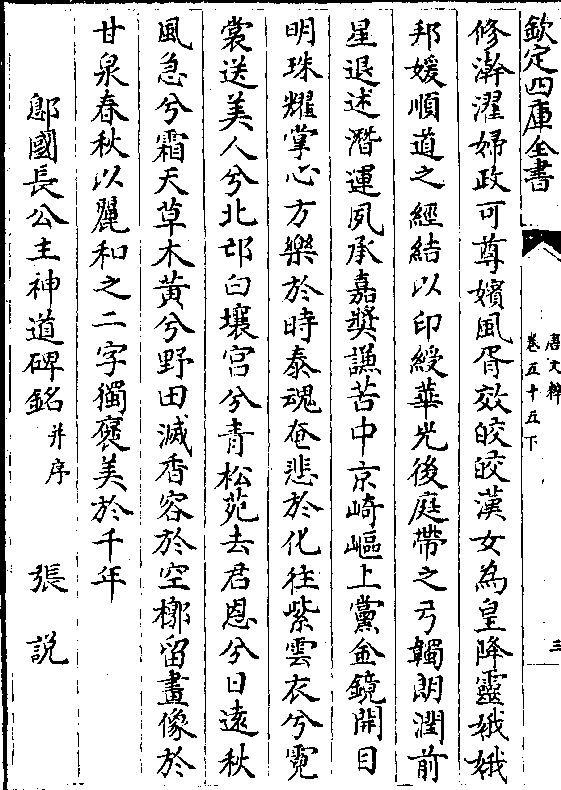 欽定四庫全書
唐文粹
卷五十五下
三
修澣濯婦政可尊嬪風胥效皎皎漢女為皇降靈娥娥
邦媛順道之經結以印綬華光後庭帶之弓韣朗潤前
星退述潛運夙承嘉獎謙苦中京崎嶇上黨金鏡開目
明珠耀掌心方樂於時泰魂奄悲於化往紫雲衣兮霓
裳送美人兮北邙白壤宮兮青松苑去君恩兮日遠秋
風急兮霜天草木黄兮野田滅香容於空槨留畫像於
甘泉春秋以麗和之二字獨襃美於千年
郎國長公主神道碑銘并序 張說